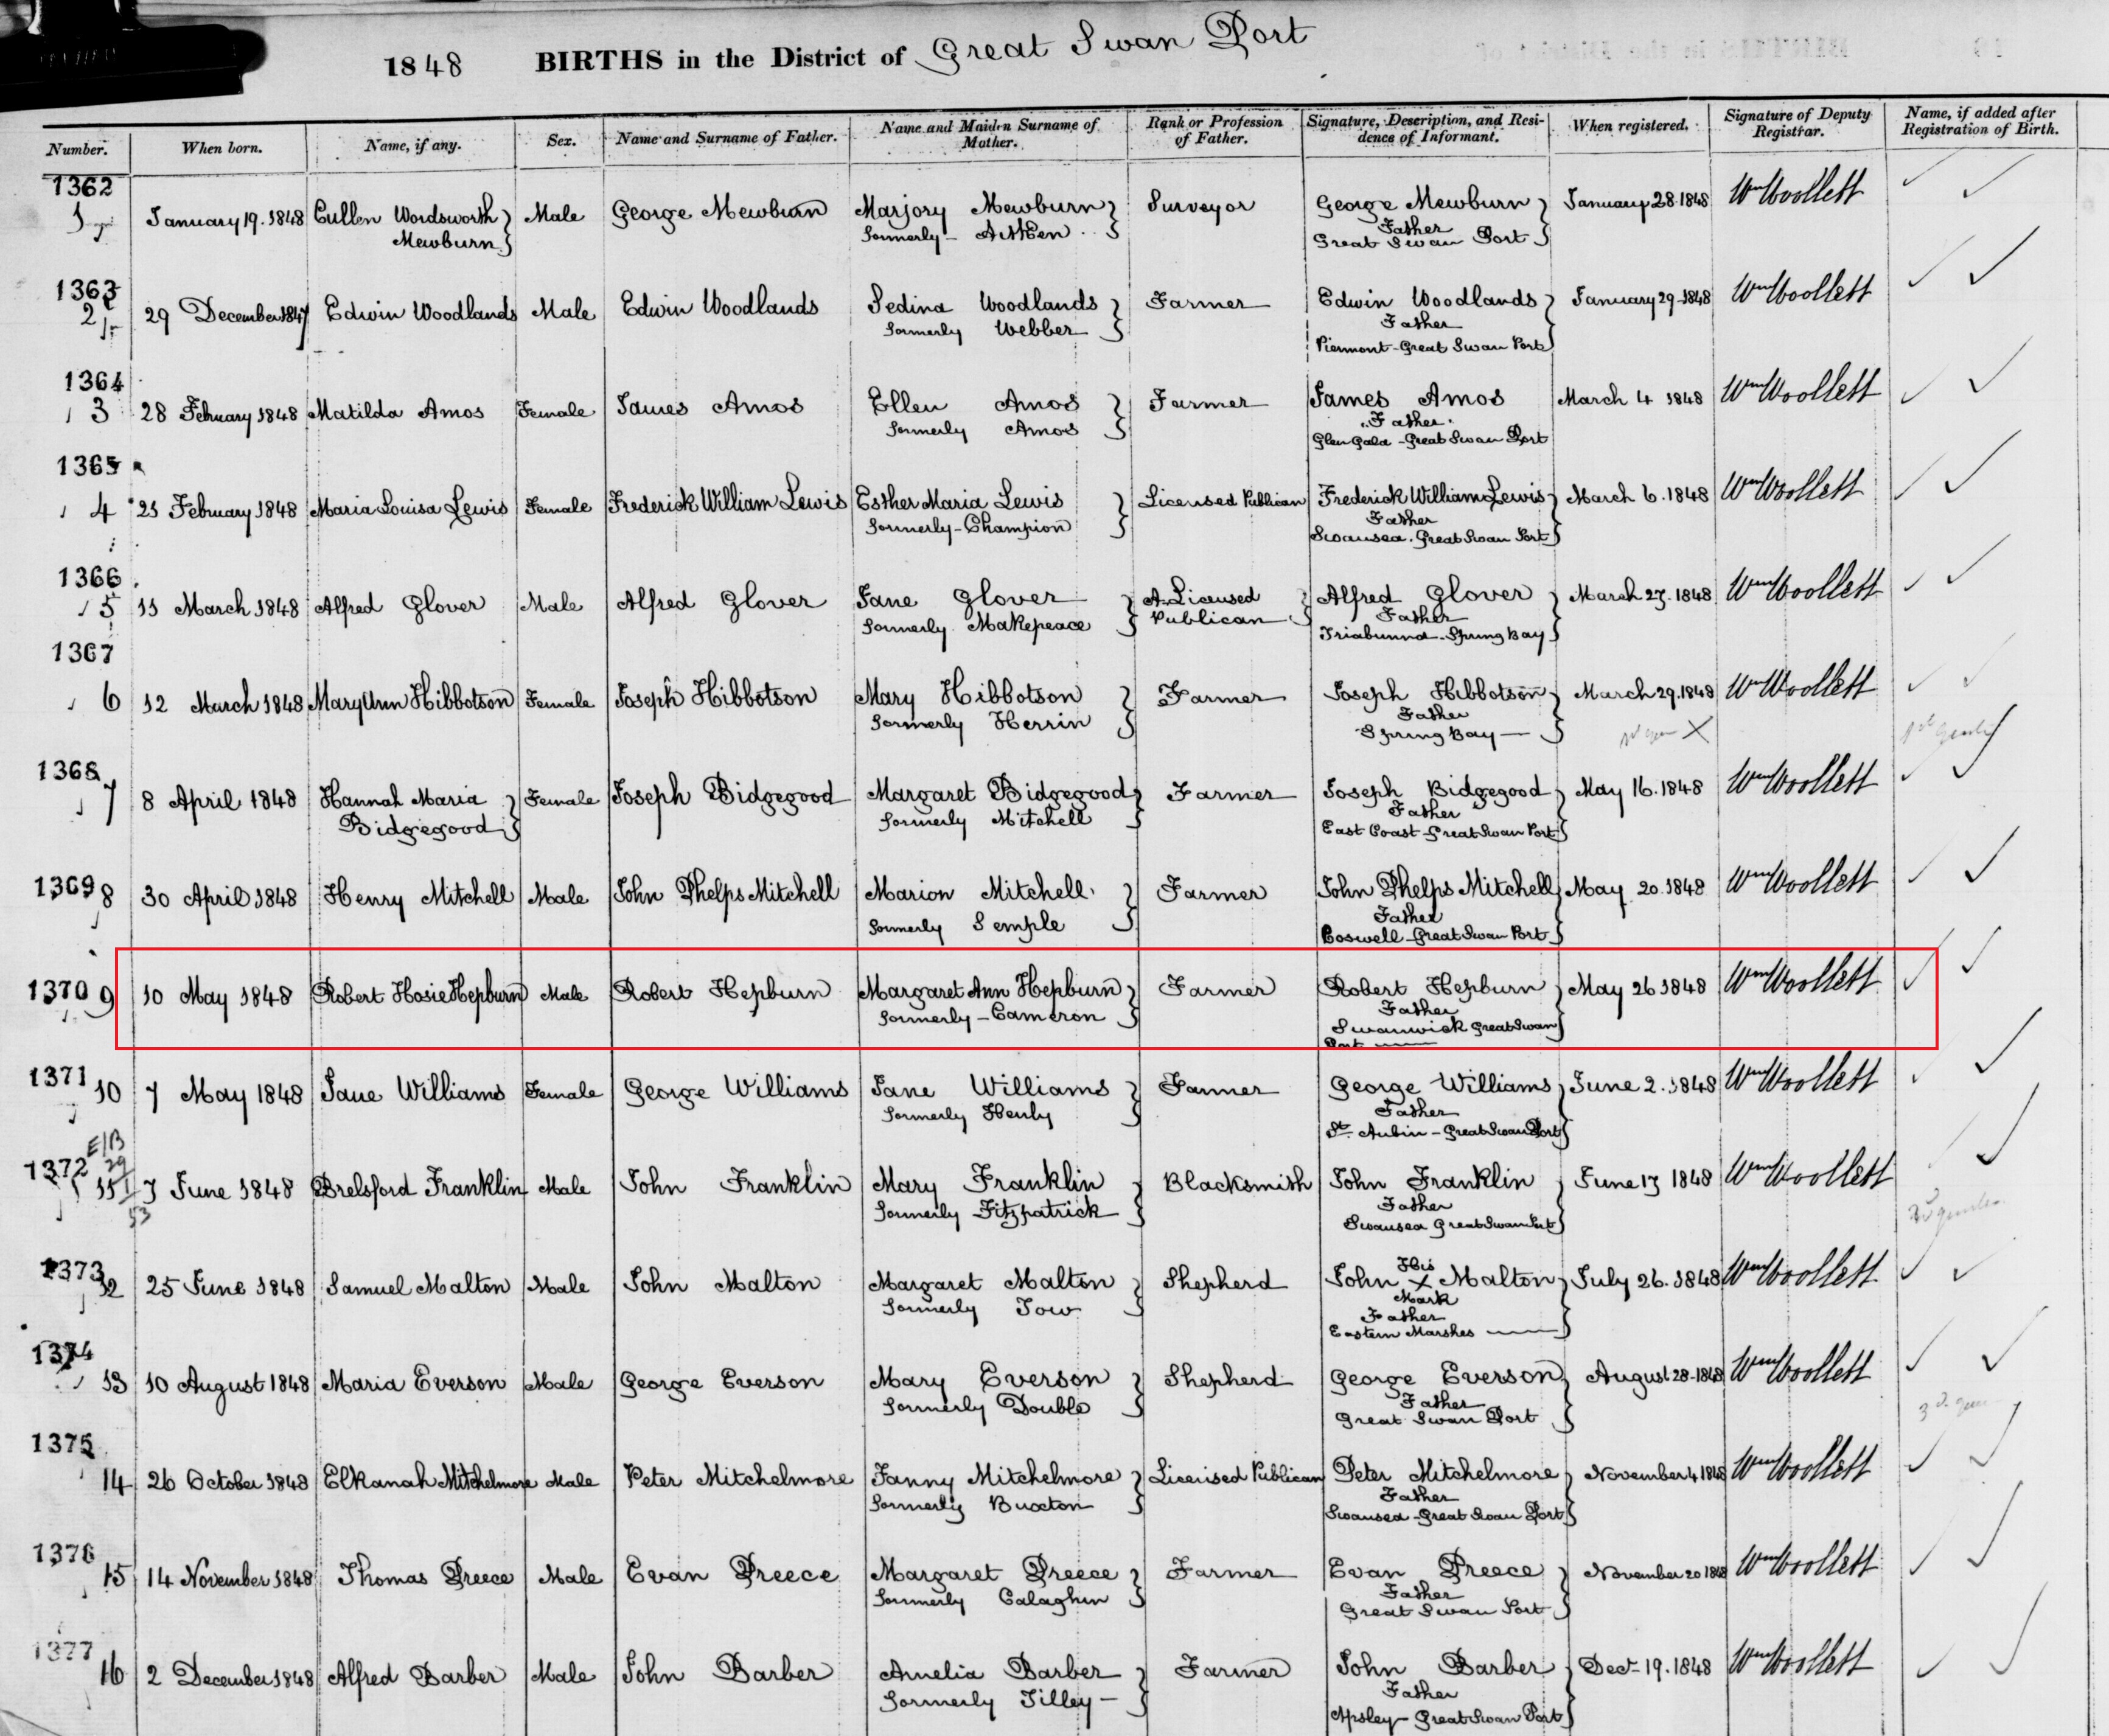 1848 BIRTHS in the District of Great Swan Port
Number. When born. Name, if any. Sex. Name and Surname of Father. Name and Maiden Surname of Mother. Rank or Profession of Father. Signature, Description, and Residence of Informant. When registered. Signature of Deputy Registrar. Name, if added after Registration of Birth.
1362
1 January 19. 1848 Cullen Wordsworth Mewburn Male George Mewburn Marjory Mewburn formerly - Aitken Surveyor George Mewburn Father Great Swan Port January 28. 1848 Wm Woollett
1363
2 29 December 1847 Edwin Woodlands Male Edwin Woodlands Sedina Woodlands formerly Webber Farmer Edwin Woodlands Father Piermont - Great Swan Port January 29 - 1848 Wm Woollett
1364
3 28 February 1848 Matilda Amos Female James Amos Ellen Amos formerly Amos Farmer James Amos Father Glen Gala - Great Swan Port March 4 1848 Wm Woollett
1365
4 21 February 1848 Maria Louisa Lewis Female Frederick William Lewis Esther Maria Lewis formerly - Champion Licensed Publican Frederick William Lewis Father Swansea. Great Swan Port March 6. 1848 Wm Woollett
1366
5 11 March 1848 Alfred Glover Male Alfred Glover Jane Glover formerly Makepeace A Licensed Publican Alfred Glover Father Triabunna - Spring Bay March 27. 1848 Wm Woollett
1367
6 12 March 1848 Mary Ann Hibbotson Female Joseph Hibbotson Mary Hibbotson formerly Herrin Farmer Joseph Hibbotson Father Spring Bay March 29. 1848 Wm Woollett
1368
7 8 April 1848 Hannah Maria Bidgegood Female Joseph Bidgegood Margaret Bidgegood formerly Mitchell Farmer Joseph Bidgegood Father East Coast - Great Swan Port May 16. 1848 Wm Woollett
1369
8 30 April 1848 Henry Mitchell Male John Phelps Mitchell Marion Mitchell formerly Semple Farmer John Phelps Mitchell Father Coswell - Great Swan Port May 20. 1848 Wm Woollett
1370
9 10 May 1848 Robert Hosie Hepburn Male Robert Hepburn Margaret Ann Hepburn formerly - Cameron Farmer Robert Hepburn Father Swanwick Great Swan Port May 26 1848 Wm Woollett
1371
10 7 May 1848 Jane Williams Female George Williams Jane Williams formerly Henly Farmer George Williams Father St. Aubin - Great Swan Port June 2. 1848 Wm Woollett
1372
11 7 June 1848 Brelsford Franklin Male John Franklin Mary Franklin formerly Fitzpatrick Blacksmith John Franklin Father Swansea Great Swan Port June 17 1848 Wm Woollett
1373
12 25 June 1848 Samuel Malton Male John Malton Margaret Malton formerly Tow Shepherd John His X Mark Malton Father Eastern Marshes July 26. 1848 Wm Woollett
1374
13 10 August 1848 Maria Everson Male George Everson Mary Everson formerly Double Shepherd George Everson Father Great Swan Port August 28 - 1848 Wm Woollett
1375
14 26 October 1848 Elkanah Mitchelmore Male Peter Mitchelmore Fanny Mitchelmore formerly Buxton Licensed Publican Peter Mitchelmore Father Swansea - Great Swan Port November 4 1848 Wm Woollett
1376
15 14 November 1848 Thomas Preece Male Evan Preece Margaret Preece formerly Calaghan Farmer Evan Preece Father Great Swan Port November 20 1848 Wm Woollett
1377
16 2 December 1848 Alfred Barber Male John Barber Amelia Barber formerly Tilley - Farmer John Barber Father Apsley - Great Swan Port Decr 19. 1848 Wm Woollett